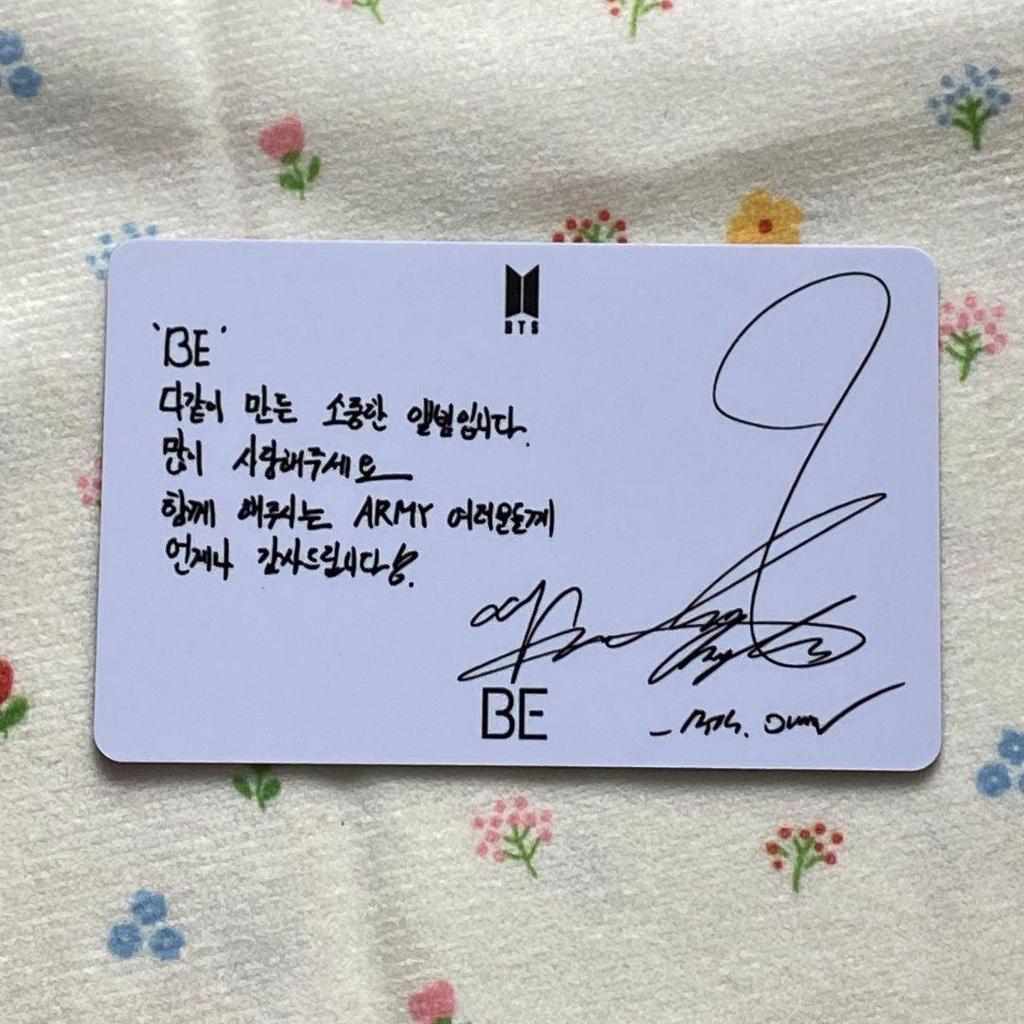 BTS
'BE'
다같이 만든 소중한 앨범입니다.
많이 사랑해주세요
함께 해주시는 ARMY 여러분들께
언제나 감사드립니다.
BE